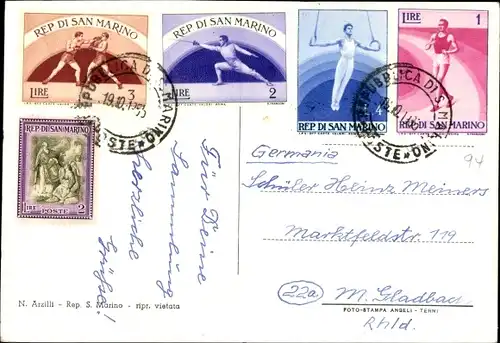 REP. DI SAN MARINO
3 LIRE
REP. DI SAN MARINO
LIRE 2
REP. DI SAN MARINO
4
LIRE 1
REP. DI SAN MARINO
REPUBBLICA DI S. MARINO
19.10.1955
POSTE
REPUBBLICA DI S. MARINO
POSTE
REP. DI SAN MARINO
LIRE POSTE 2
Für Deine
Sammlung
herzliche
Grüße!
Germania
94
Schüler Heinz Meiners
Marktfeldstr. 119
22a
M. Gladbach
Rhld.
N. Arzilli - Rep. S. Marino - ripr. vietata
FOTO-STAMPA ANGELI - TERNI